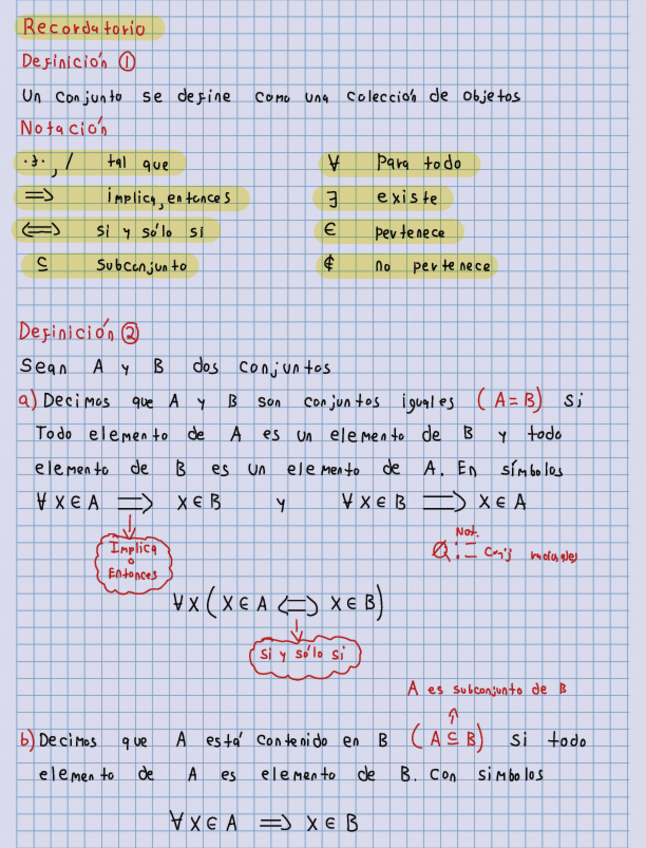 Recordatorio
Definición ①
Un conjunto se define como una colección de objetos
Notación
.э. , / tal que ∀ Para todo
⟹ implica, entonces ∃ existe
⟺ si y sólo si ∈ pertenece
⊆ Subconjunto ∉ no pertenece
Definición ②
Sean A y B dos conjuntos
a) Decimos que A y B son conjuntos iguales (A = B) si
Todo elemento de A es un elemento de B y todo
elemento de B es un elemento de A. En símbolos
∀ X ∈ A ⟹ X ∈ B y ∀ X ∈ B ⟹ X ∈ A
Implica
o
Entonces
Not.
Q := Conj racionales
∀ X (X ∈ A ⟺ X ∈ B)
Si y sólo si
A es subconjunto de B
b) Decimos que A está contenido en B (A ⊆ B) si todo
elemento de A es elemento de B. Con simbolos
∀ X ∈ A ⟹ X ∈ B